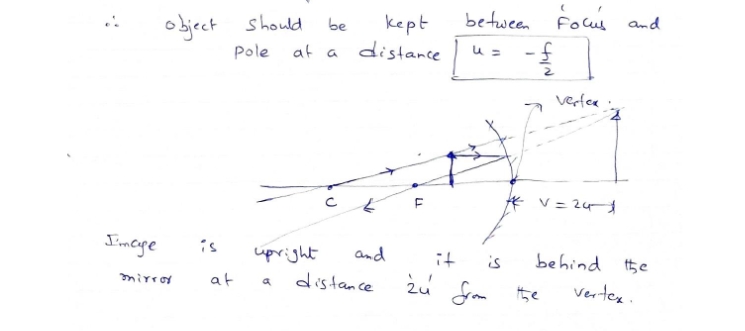 ∴ object should be kept between 'Focus' and
pole at a distance u = -f/2
vertex.
C F V = 2u
Image is upright and it is behind the
mirror at a distance '2u' from the vertex.